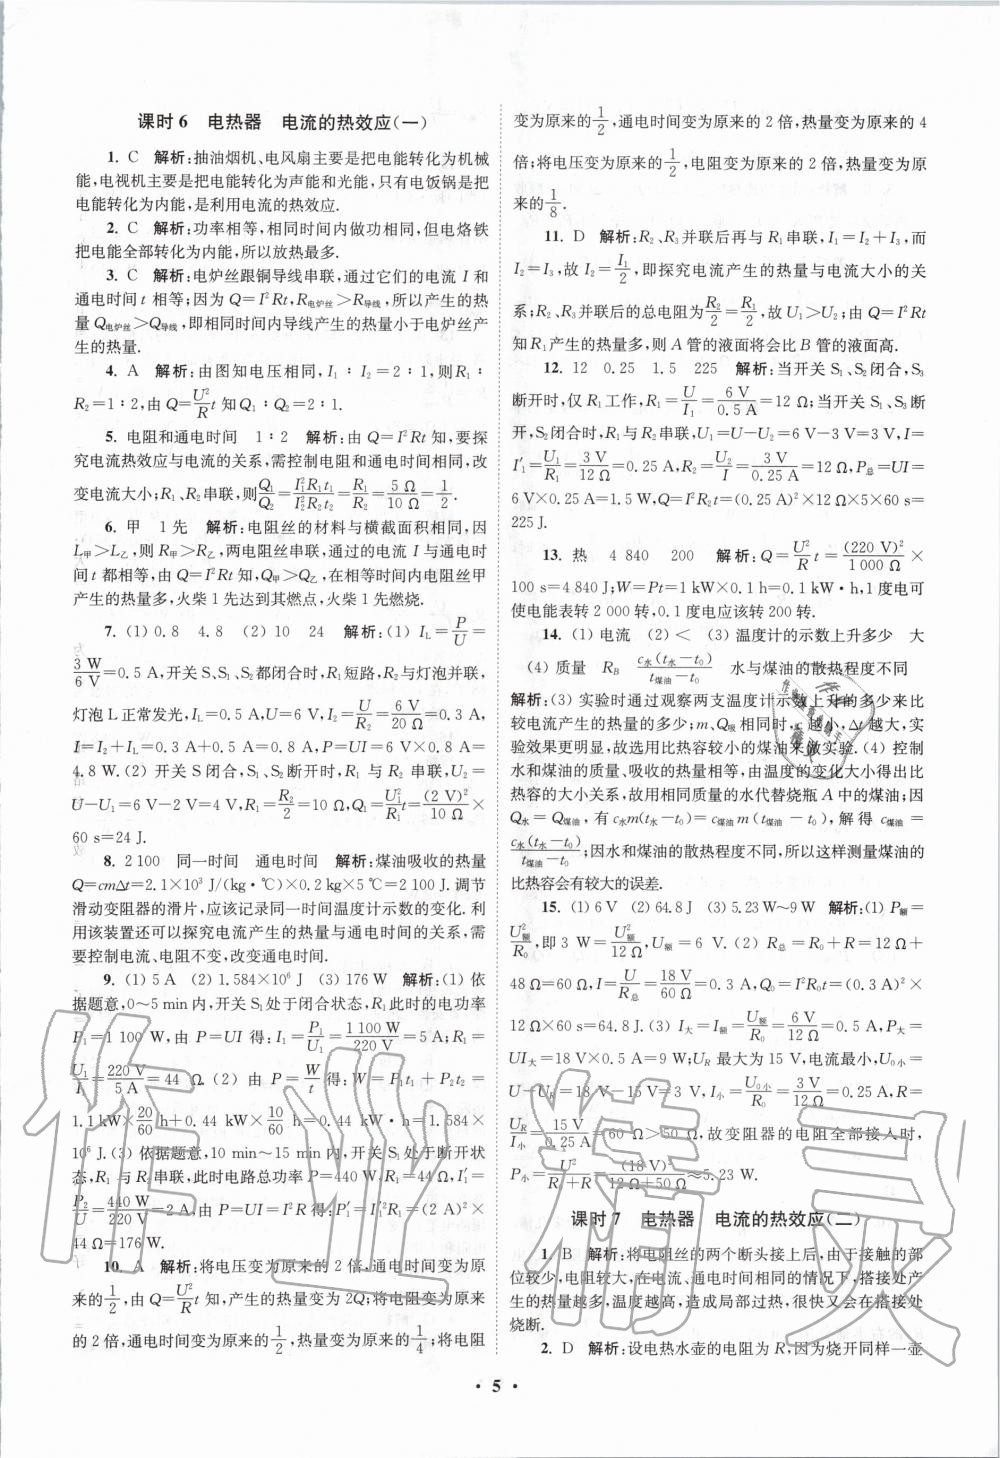 课时 6　电热器　电流的热效应(一)
1. C　解析:抽油烟机、电风扇主要是把电能转化为机械
能,电视机主要是把电能转化为声能和光能,只有电饭锅是把
电能转化为内能,是利用电流的热效应.
2. C　解析:功率相等,相同时间内做功相同,但电烙铁
把电能全部转化为内能,所以放热最多.
3. C　解析:电炉丝跟铜导线串联,通过它们的电流 I 和
通电时间 t 相等;因为 Q=I²Rt,R电炉丝>R导线,所以产生的热
量 Q电炉丝>Q导线,即相同时间内导线产生的热量小于电炉丝产
生的热量.
4. A　解析:由图知电压相同,I₁∶I₂=2∶1,则R₁∶
R₂=1∶2,由 Q=U²/R t 知 Q₁∶Q₂=2∶1.
5. 电阻和通电时间　1∶2　解析:由 Q=I²Rt 知,要探
究电流热效应与电流的关系,需控制电阻和通电时间相同,改
变电流大小;R₁、R₂串联,则Q₁/Q₂=I₁²R₁t₁/I₂²R₂t₂=R₁/R₂=5 Ω/10 Ω=1/2.
6. 甲　1先　解析:电阻丝的材料与横截面积相同,因
L甲>L乙,则 R甲>R乙,两电阻丝串联,通过的电流 I 与通电时
间 t 都相等,由 Q=I²Rt 知,Q甲>Q乙,在相等时间内电阻丝甲
产生的热量多,火柴1先达到其燃点,火柴1先燃烧.
7. (1) 0.8　4.8　(2) 10　24　解析:(1) I_L=P/U=
3 W/6 V=0.5 A,开关 S、S₁、S₂都闭合时,R₁短路,R₂与灯泡并联,
灯泡 L 正常发光,I_L=0.5 A,U=6 V,I₂=U/R₂=6 V/20 Ω=0.3 A,
I=I₂+I_L=0.3 A+0.5 A=0.8 A,P=UI=6 V×0.8 A=
4.8 W.(2) 开关 S 闭合,S₁、S₂断开时,R₁与 R₂ 串联,U₂=
U-U₁=6 V-2 V=4 V,R₁=R₂/2=10 Ω,Q₁=U₁²/R₁ t=(2 V)²/10 Ω×
60 s=24 J.
8. 2 100　同一时间　通电时间　解析:煤油吸收的热量
Q=cmΔt=2.1×10³ J/(kg·℃)×0.2 kg×5 ℃=2 100 J.调节
滑动变阻器的滑片,应该记录同一时间温度计示数的变化.利
用该装置还可以探究电流产生的热量与通电时间的关系,需
要控制电流、电阻不变,改变通电时间.
9. (1) 5 A　(2) 1.584×10⁶ J　(3) 176 W　解析:(1) 依
据题意,0~5 min内,开关 S₁处于闭合状态,R₁此时的电功率
P₁=1 100 W,由 P=UI 得:I₁=P₁/U₁=1 100 W/220 V=5 A;R₁=
U₁/I₁=220 V/5 A=44 Ω.(2) 由 P=W/t得:W=P₁t₁+P₂t₂=
1.1 kW×20/60 h+0.44 kW×10/60 h=0.44 kW·h=1.584×
10⁶ J.(3) 依据题意,10 min~15 min内,开关 S₁处于断开状
态,R₁与 R₂串联,此时电路总功率 P=440 W,R₁=44 Ω,I₁′=
P₂/U=440 W/220 V=2 A,由 P=UI=I²R 得:P₁′=I₁′²R₁=(2 A)²×
44 Ω=176 W.
10. A　解析:将电压变为原来的2倍,通电时间变为原
来的1/2,由 Q=U²/R t 知,产生的热量变为 2Q;将电阻变为原来
的2倍,通电时间变为原来的1/2,热量变为原来的1/4;将电阻
变为原来的1/2,通电时间变为原来的2倍,热量变为原来的4
倍;将电压变为原来的1/2,电阻变为原来的2倍,热量变为原
来的1/8.
11. D　解析:R₂、R₃并联后再与 R₁串联,I₁=I₂+I₃,而
I₂=I₃,故 I₂=I₁/2,即探究电流产生的热量与电流大小的关
系;R₂、R₃并联后的总电阻为R₂/2=R₁/2,故 U₁>U₂;由 Q=I²Rt
知 R₁产生的热量多,则 A 管的液面将会比 B 管的液面高.
12. 12　0.25　1.5　225　解析:当开关 S₁、S₂闭合,S₃
断开时,仅 R₁工作,R₁=U/I₁=6 V/0.5 A=12 Ω;当开关 S₁、S₃断
开,S₂闭合时,R₁与 R₂串联,U₁=U-U₂=6 V-3 V=3 V,I=
I₁′=U₁/R₁=3 V/12 Ω=0.25 A,R₂=U₂/I=3 V/0.25 A=12 Ω,P总=UI=
6 V×0.25 A=1.5 W,Q=I²R₂t=(0.25 A)²×12 Ω×5×60 s=
225 J.
13. 热　4 840　200　解析:Q=U²/R t=(220 V)²/1 000 Ω×
100 s=4 840 J;W=Pt=1 kW×0.1 h=0.1 kW·h,1度电可
使电能表转2 000转,0.1度电应该转200转.
14. (1) 电流　(2) <　(3) 温度计的示数上升多少　大
(4) 质量　R_B　c水(t水-t₀)/t煤油-t₀　水与煤油的散热程度不同
解析:(3) 实验时通过观察两支温度计示数上升的多少来比
较电流产生的热量的多少;m、Q吸相同时,c越小,Δt越大,实
验效果更明显,故选用比热容较小的煤油来做实验.(4) 控制
水和煤油的质量、吸收的热量相同,由温度的变化大小得出比
热容的大小关系,故用相同质量的水代替烧瓶 A 中的煤油;因
Q水=Q煤油,有 c水m(t水-t₀)=c煤油m(t煤油-t₀),解得 c煤油=
c水(t水-t₀)/t煤油-t₀;因水和煤油的散热程度不同,所以这样测量煤油的
比热容会有较大的误差.
15. (1) 6 V　(2) 64.8 J　(3) 5.23 W~9 W　解析:(1) P额=
U额²/R₀,即 3 W=U额²/12 Ω,U额=6 V.(2) R总=R₀+R=12 Ω+
48 Ω=60 Ω,I=U/R总=18 V/60 Ω=0.3 A,Q₀=I²R₀t=(0.3 A)²×
12 Ω×60 s=64.8 J.(3) I大=I额=U额/R₀=6 V/12 Ω=0.5 A,P大=
UI大=18 V×0.5 A=9 W;U_R最大为15 V,电流最小,U₀小=
U-U_R=18 V-15 V=3 V,I小=U₀小/R₀=3 V/12 Ω=0.25 A,R=
U_R/I小=15 V/0.25 A=60 Ω>50 Ω,故变阻器的电阻全部接入时,
P小=U²/R+R=(18 V)²/12 Ω+50 Ω≈5.23 W.
课时 7　电热器　电流的热效应(二)
1. B　解析:将电阻丝的两个断头接上后,由于接触的部
位较少,电阻较大,在电流、通电时间相同的情况下,搭接处产
生的热量越多,温度越高,造成局部过热,很快又会在搭接处
烧断.
2. D　解析:设电热水壶的电阻为 R,因为烧开同样一壶
· 5 ·
作业精灵